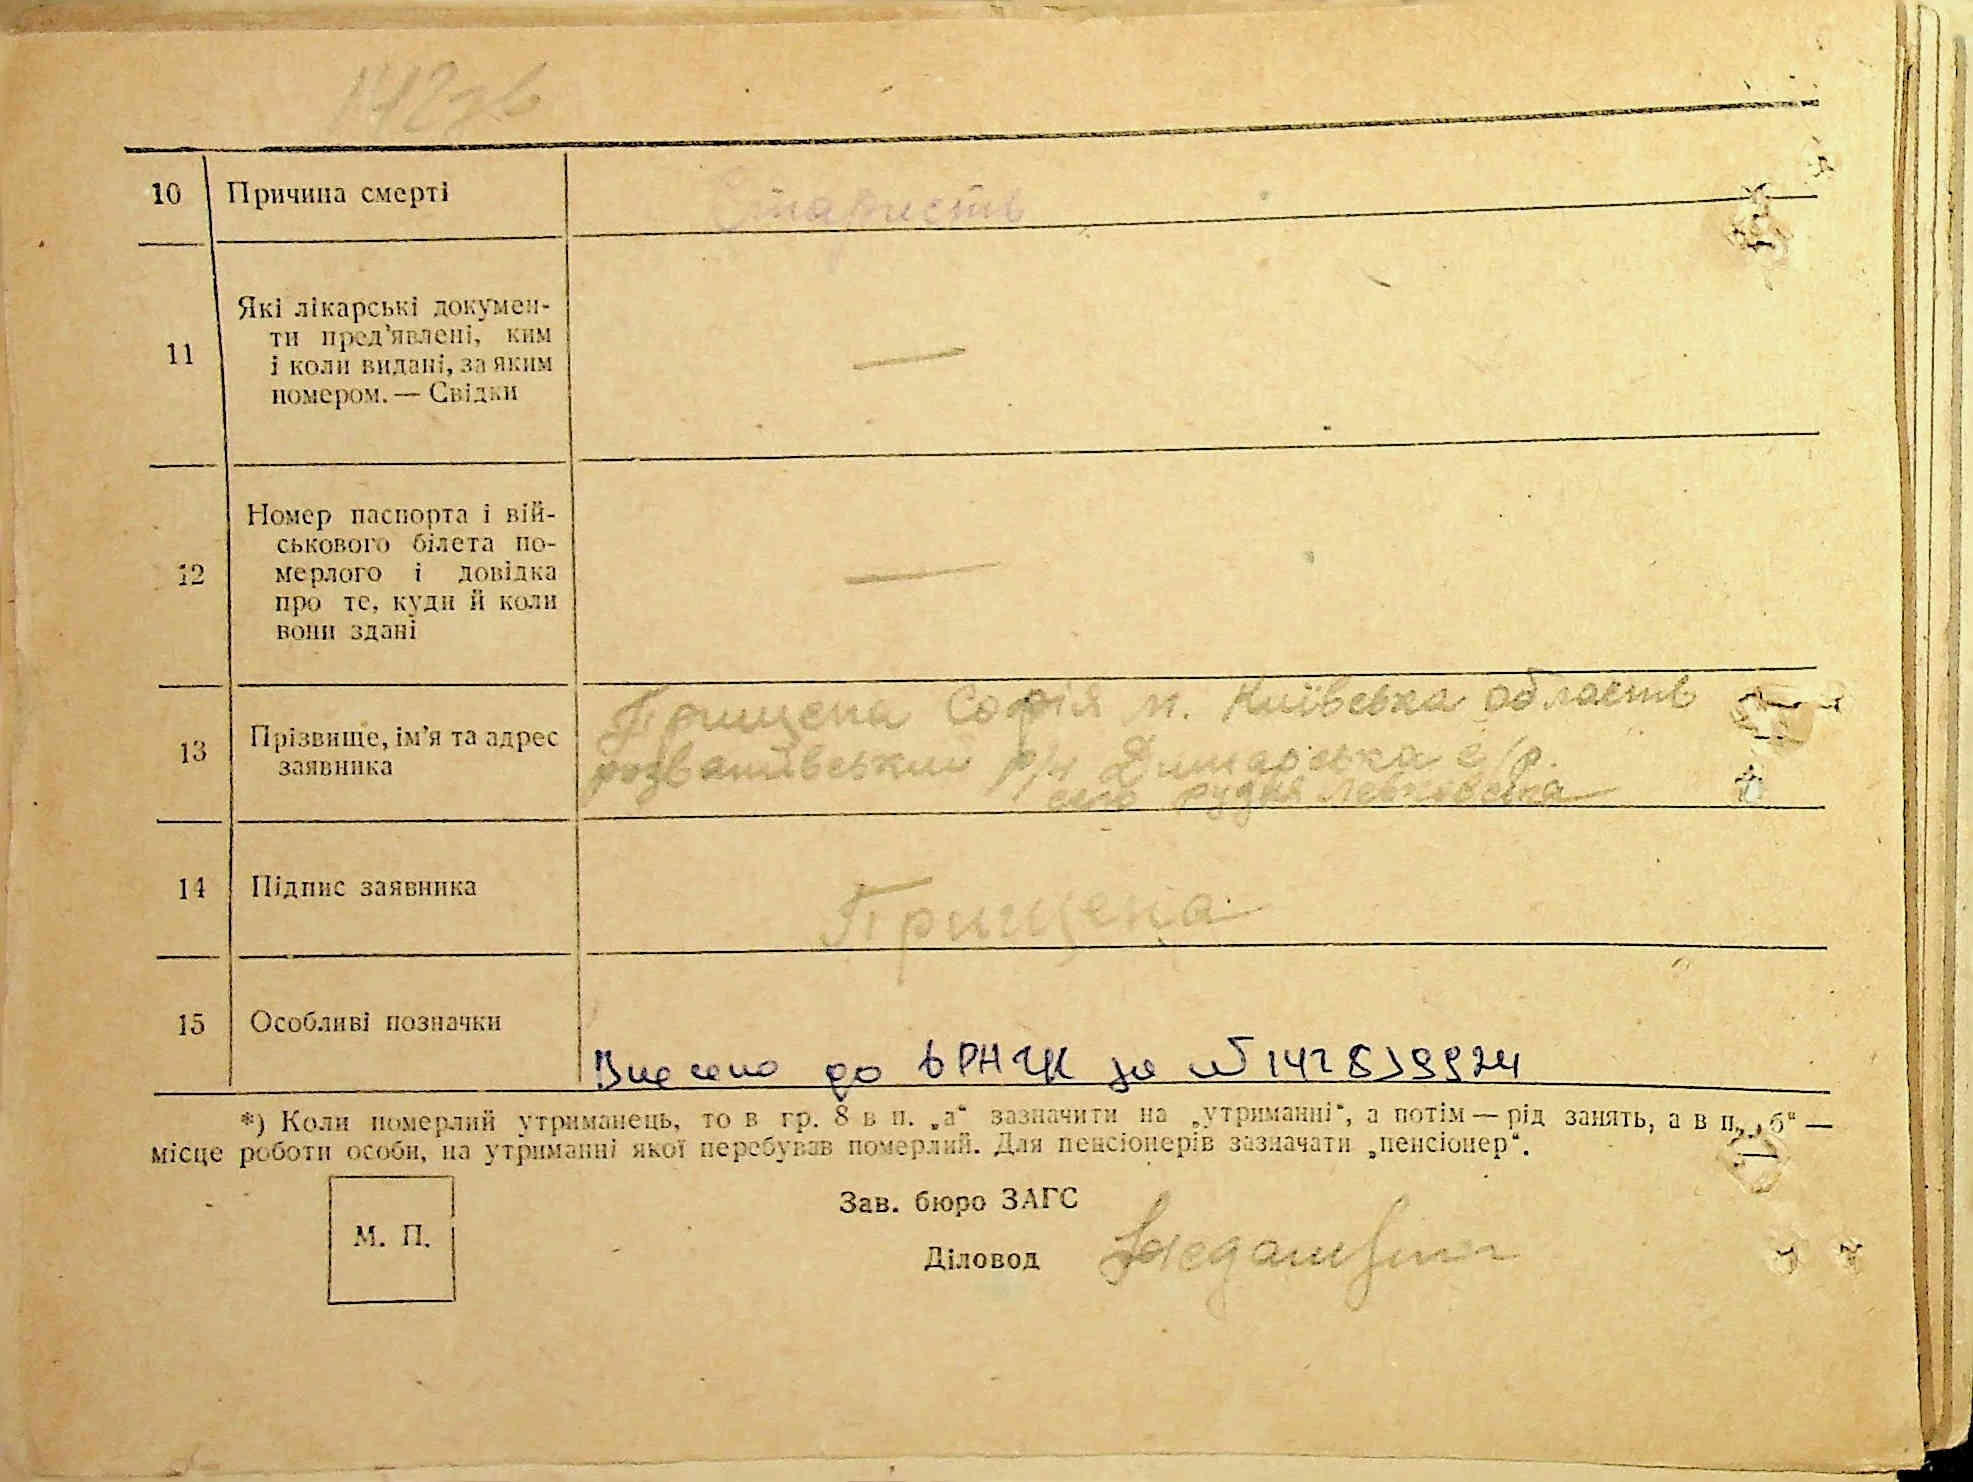 142зв
10 Причина смерті Старість
11 Які лікарські докумен-
ти пред’явлені, ким
і коли видані, за яким
номером. — Свідки —
12 Номер паспорта і вій-
ськового білета по-
мерлого і довідка
про те, куди й коли
вони здані —
13 Прізвище, ім’я та адрес
заявника
Грищепа Софія м. Київська область
розважівський р/н Димарська с/р.
село рудня Левковська
14 Підпис заявника Грищепа
15 Особливі позначки
Внесено до за №
*) Коли померлий утриманець, то в гр. 8 в п. „а“ зазначити на „утриманні“, а потім — рід занять, а в п. „б“ —
місце роботи особи, на утриманні якої перебував померлий. Для пенсіонерів зазначати „пенсіонер“.
М. П.
Зав. бюро ЗАГС
Діловод